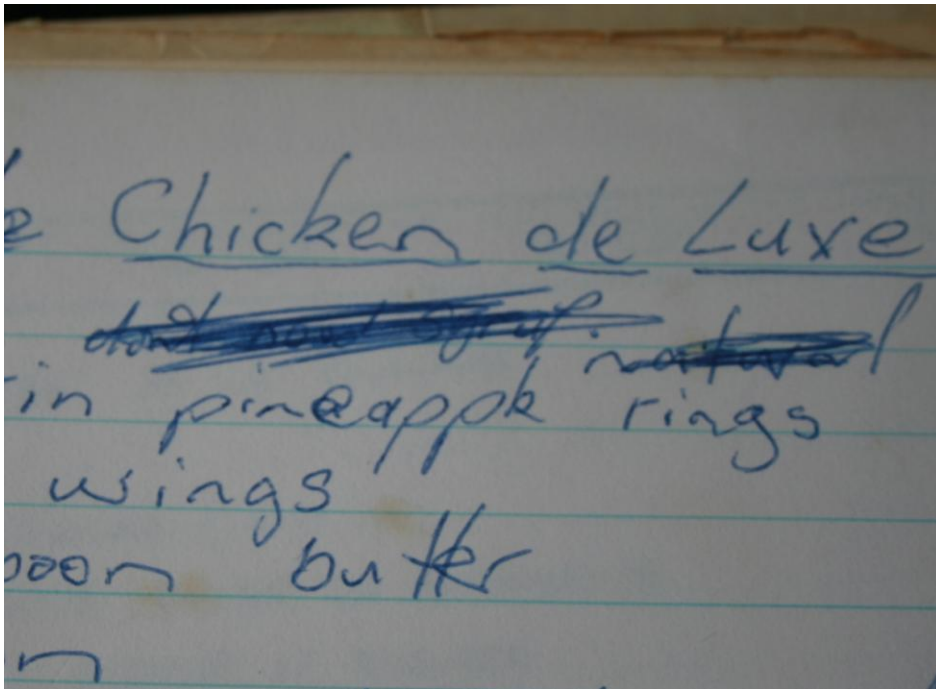 Chicken de Luxe
natural
in pineapple rings
wings
poon butter